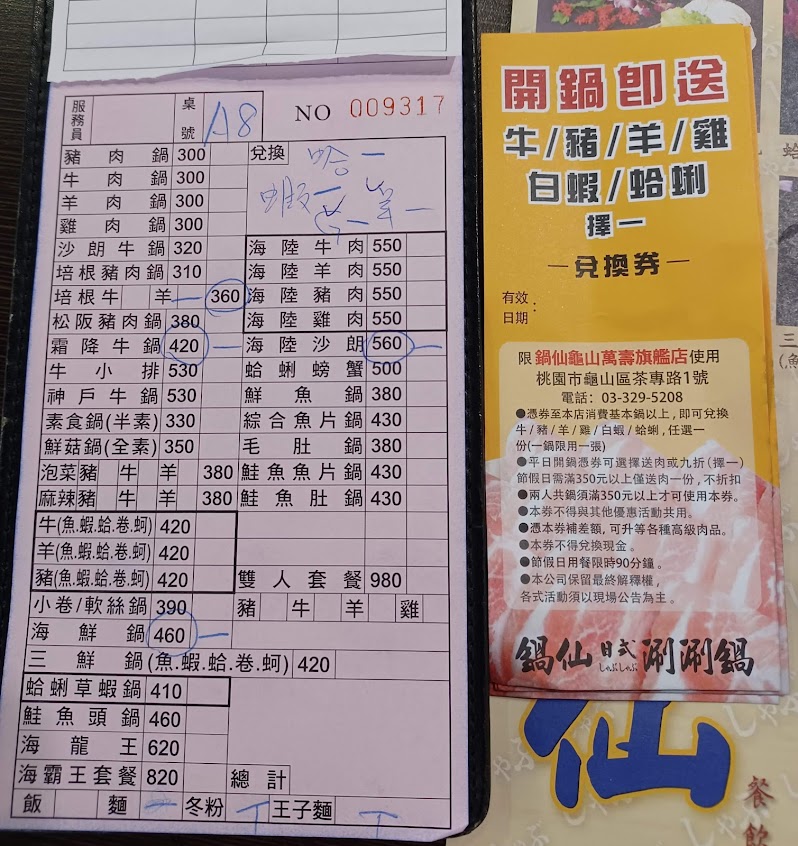 服務員 桌號 A8 NO 009317
豬肉鍋 300 兌換 蛤一
牛肉鍋 300 蝦一
羊肉鍋 300 羊一
雞肉鍋 300
沙朗牛鍋 320 海陸牛肉 550
培根豬肉鍋 310 海陸羊肉 550
培根牛 羊 一 360 海陸豬肉 550
松阪豬肉鍋 380 海陸雞肉 550
霜降牛鍋 420 一 海陸沙朗 560 一
牛小排 530 蛤蜊螃蟹 500
神戶牛鍋 530 鮮魚鍋 380
素食鍋(半素) 330 綜合魚片鍋 430
鮮菇鍋(全素) 350 毛肚鍋 380
泡菜豬 牛 羊 380 鮭魚魚片鍋 430
麻辣豬 牛 羊 380 鮭魚肚鍋 430
牛(魚.蝦.蛤.卷.蚵) 420
羊(魚.蝦.蛤.卷.蚵) 420
豬(魚.蝦.蛤.卷.蚵) 420 雙人套餐 980
小卷/軟絲鍋 390 豬 牛 羊 雞
海鮮鍋 460 一
三鮮鍋(魚.蝦.蛤.卷.蚵) 420
蛤蜊草蝦鍋 410
鮭魚頭鍋 460
海龍王 620
海霸王套餐 820 總計
飯 麵 一 冬粉 T 王子麵 T
開鍋即送
牛/豬/羊/雞
白蝦/蛤蜊
擇一
—兌換券—
有效日期:
限 鍋仙龜山萬壽旗艦店 使用
桃園市龜山區茶專路1號
電話: 03-329-5208
●憑券至本店消費基本鍋以上,即可兌換
牛/豬/羊/雞/白蝦/蛤蜊,任選一
份(一鍋限用一張)
●平日開鍋憑券可選擇送肉或九折(擇一)
節假日需滿350元以上僅送肉一份,不折扣
●兩人共鍋須滿350元以上才可使用本券。
●本券不得與其他優惠活動共用。
●憑本券補差額,可升等各種高級肉品。
●本券不得兌換現金。
●節假日用餐限時90分鐘。
●本公司保留最終解釋權,
各式活動須以現場公告為主。
鍋仙日式しゃぶしゃぶ涮涮鍋
仙
餐飲